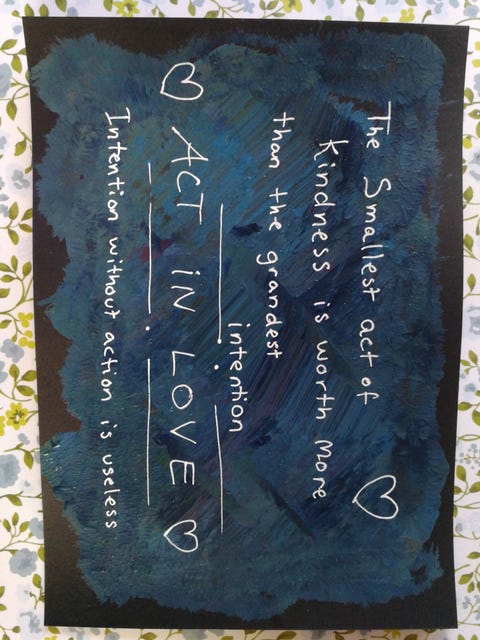 The Smallest act of
kindness is worth more
than the grandest
intention
ACT IN LOVE
Intention without action is useless